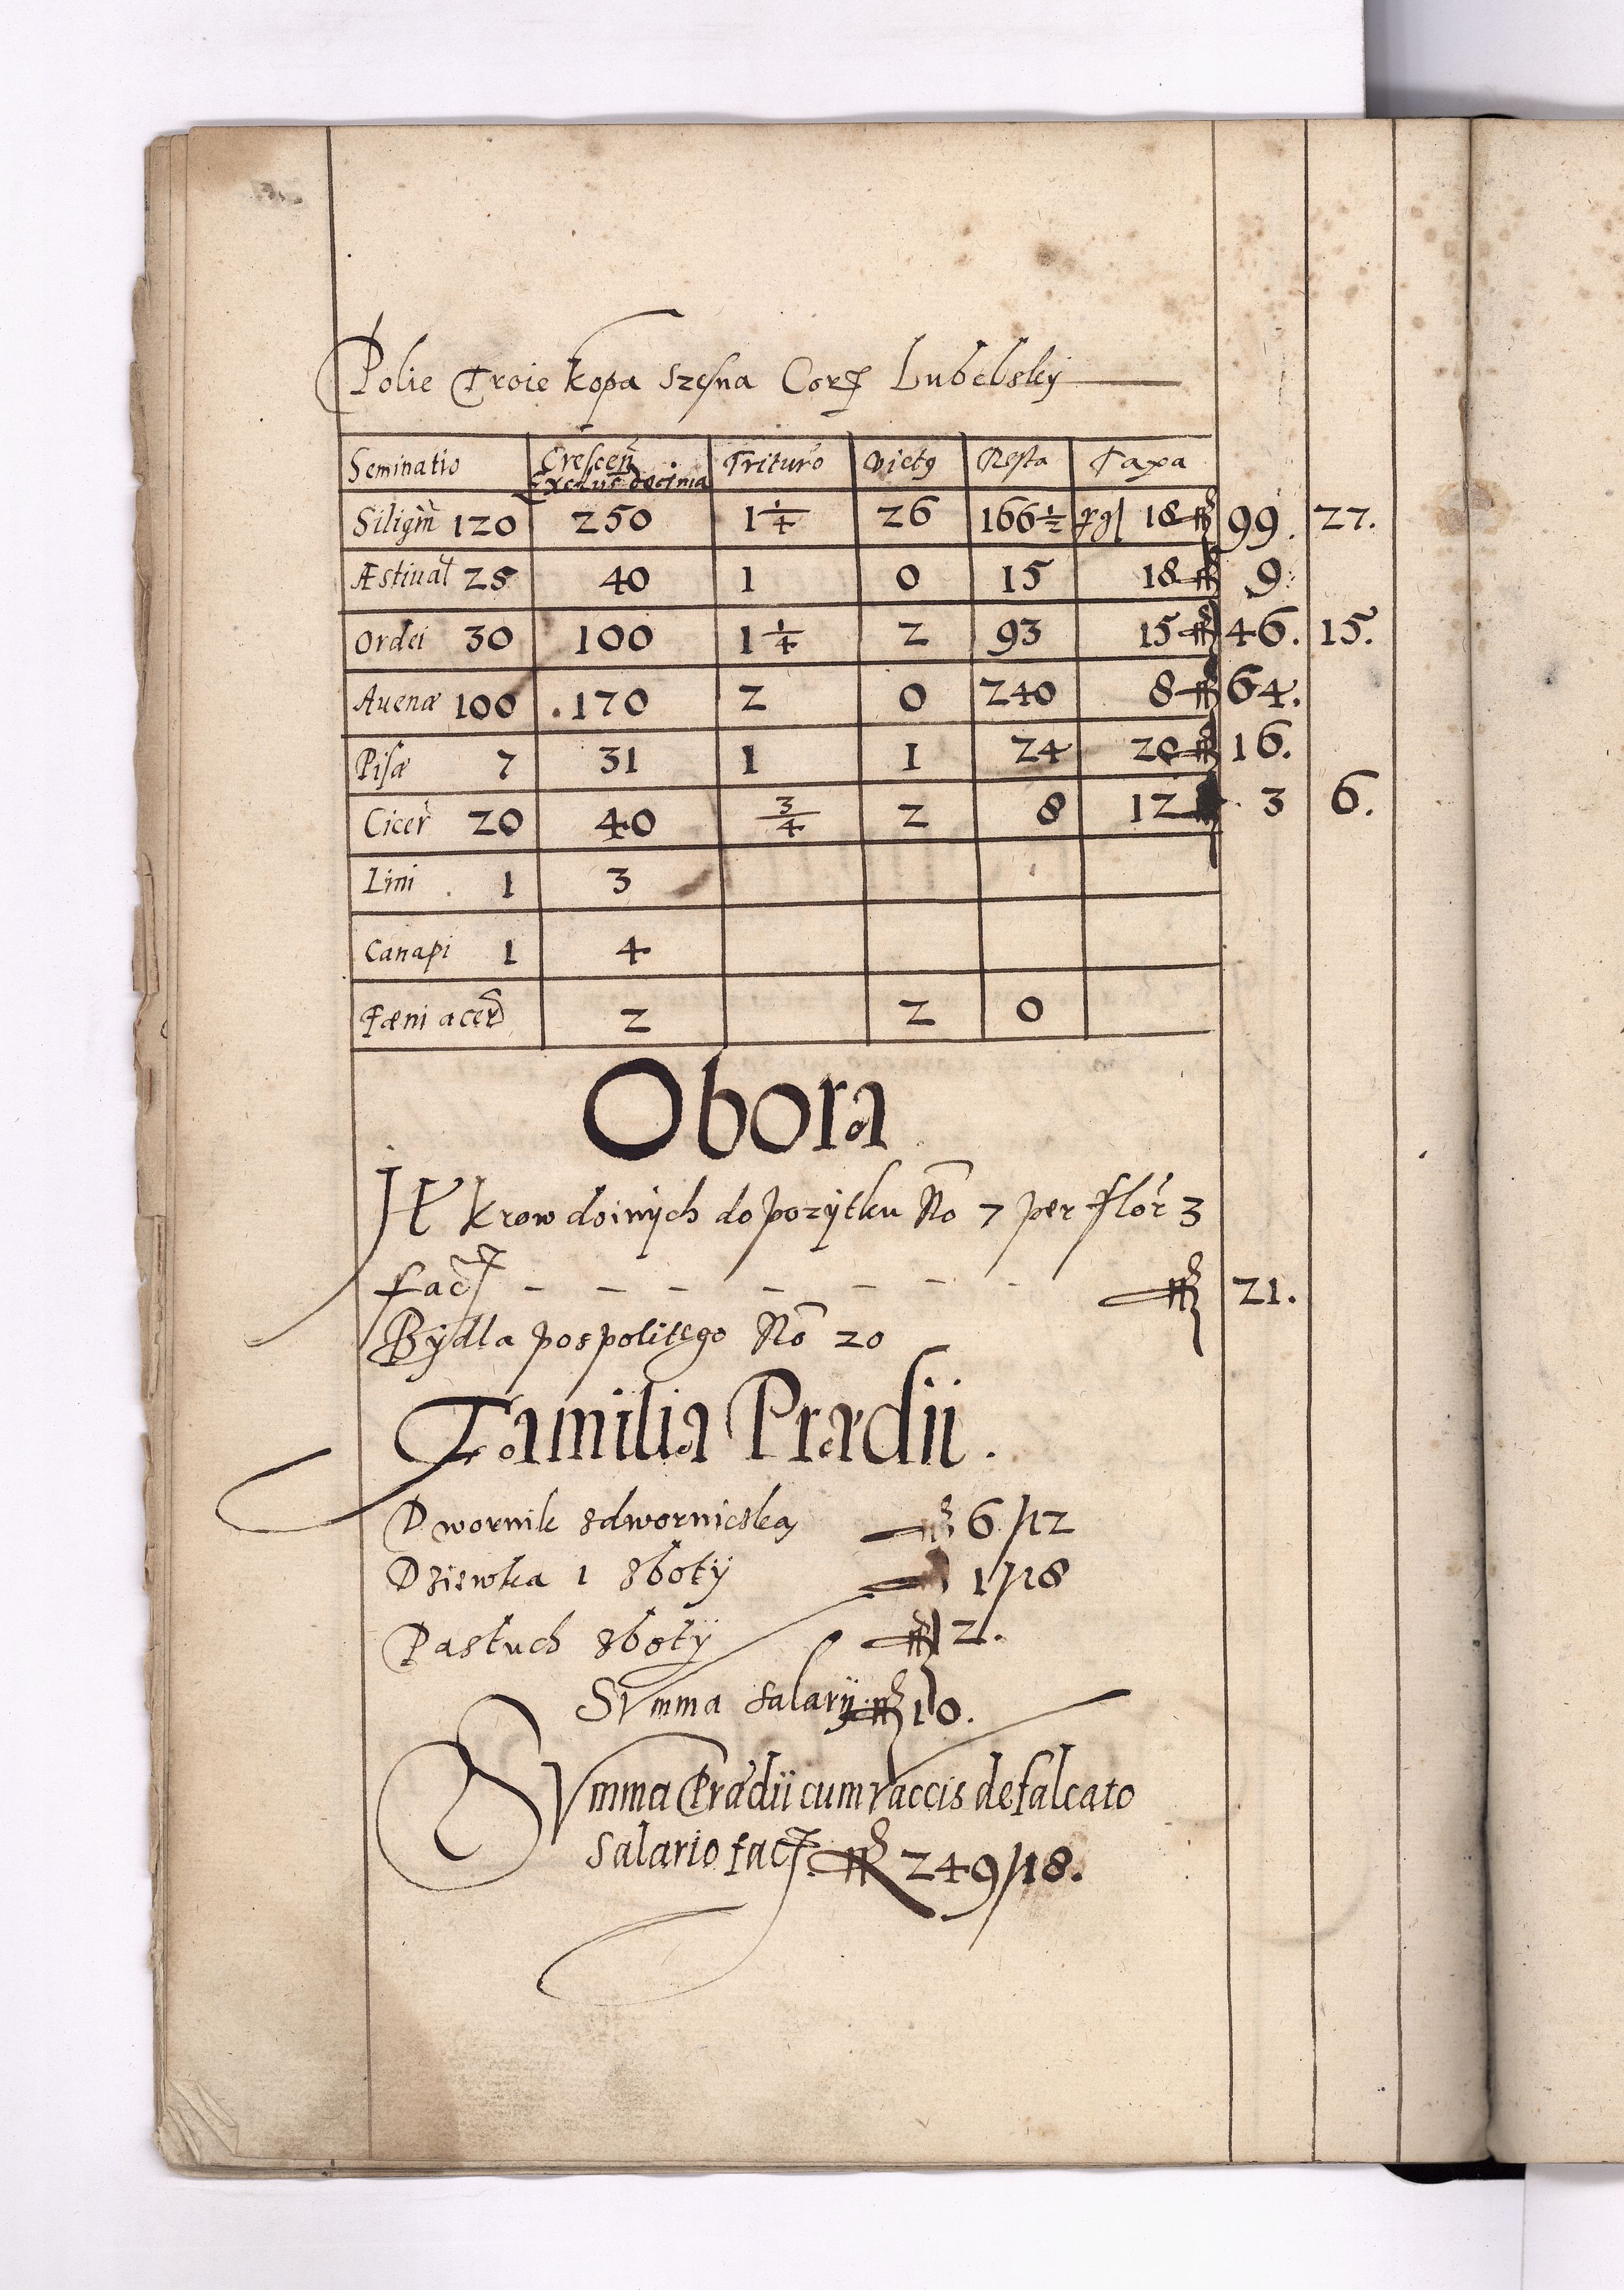 Polie Troie kopa szesna Cor Lubelsky
Seminatio Crescen Exclus decima Tritur Victg Resta Taxa
Siligin 120 250 1 1/4 26 166 1/2 pg 18 99. 27.
Æstiual 25 40 1 0 15 18 9.
Ordei 30 100 1 1/4 2 93 15 46. 15.
Auenæ 100 .170 2 0 240 8 64.
Pisæ 7 31 1 1 24 20 16.
Cicer 20 40 3/4 2 8 12 3 6.
Lini 1 3
Canapi 1 4
Fæni acer 2 2 0
Obora
Krow doinÿch do pozÿtku No 7 per flor 3
fact - - - - - - - 21.
Bÿdla pospolitego No 20
Familia Prædii.
Dwornik zdworniczką 6/12
Dziewka 1 zboty 1/18
Pastuch zboty 2.
Summa salarÿ 10.
Summa Prædii cum vaccis defalcato
salario fact 249/18.